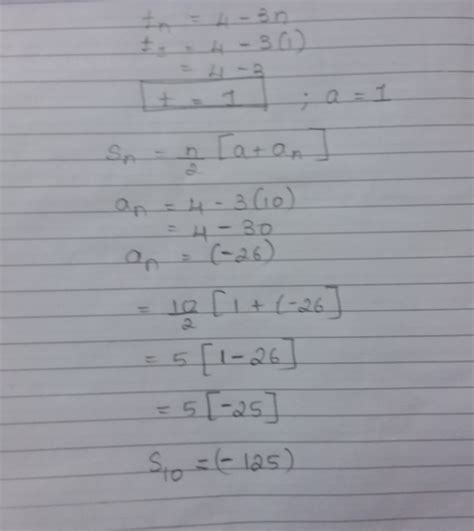 tn = 4 - 3n
t1 = 4 - 3(1)
= 4 - 3
t = 1 ; a = 1
Sn = n/2 [a + an]
an = 4 - 3(10)
= 4 - 30
an = (-26)
= 10/2 [1 + (-26]
= 5 [1 - 26]
= 5 [-25]
S10 = (-125)